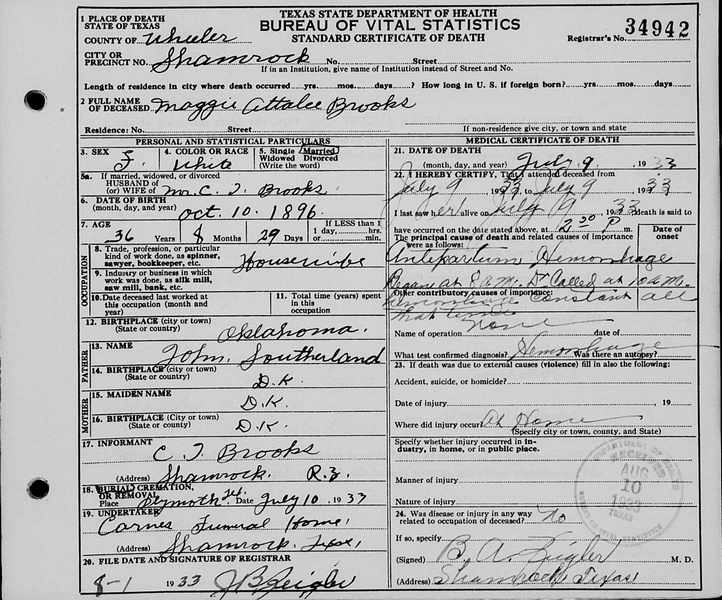 TEXAS STATE DEPARTMENT OF HEALTH
BUREAU OF VITAL STATISTICS
STANDARD CERTIFICATE OF DEATH
Registrar's No. 34942
1 PLACE OF DEATH
STATE OF TEXAS
COUNTY OF Wheeler
CITY OR
PRECINCT NO. Shamrock No. Street
If in an Institution, give name of Institution instead of Street and No.
Length of residence in city where death occurred yrs. mos. days? How long in U. S. if foreign born? yrs. mos. days
2 FULL NAME
OF DECEASED Maggie Attalee Brooks
Residence: No. Street If non-residence give city, or town and state
PERSONAL AND STATISTICAL PARTICULARS
3. SEX F. 4. COLOR OR RACE White 5. Single Married
Widowed Divorced
(Write the word)
5a. If married, widowed, or divorced
HUSBAND OF
(or) WIFE OF Mr. C. J. Brooks
6. DATE OF BIRTH
(month, day, and year) Oct. 10. 1896.
7. AGE 36 Years 8 Months 29 Days If LESS than 1 day, hrs. min.
OCCUPATION
8. Trade, profession, or particular
kind of work done, as spinner,
sawyer, bookkeeper, etc. Housewife
9. Industry or business in which
work was done, as silk mill,
saw mill, bank, etc.
10. Date deceased last worked at
this occupation (month and
year)
11. Total time (years) spent
in this
occupation
12. BIRTHPLACE (city or town)
(State or country) Oklahoma.
FATHER
13. NAME John. Southerland
14. BIRTHPLACE (city or town)
(State or country) D.K.
MOTHER
15. MAIDEN NAME D.K.
16. BIRTHPLACE (City or town)
(State or country) D.K.
17. INFORMANT C J Brooks
(Address) Shamrock. R.2.
18. BURIAL, CREMATION,
OR REMOVAL
Place Plymoth Date July 10 1933
19. UNDERTAKER Carnes Funeral Home,
(Address) Shamrock, Texas,
20. FILE DATE AND SIGNATURE OF REGISTRAR
8-1 1933 J B Zeigler
MEDICAL CERTIFICATE OF DEATH
21. DATE OF DEATH
(month, day, and year) July 9 1933
22. I HEREBY CERTIFY, That I attended deceased from
July 9 1933 to July 9 1933
I last saw her alive on July 9 1933 death is said to
have occurred on the date stated above, at 2 30 P m.
The principal cause of death and related causes of importance
were as follows: Date of
onset
Antipartum Hemorrhage
Began at 8 A.M. Dr Called at 10 A.M.
Other contributory causes of importance:
Hemorrhage Constant all
that time
Name of operation None date of
What test confirmed diagnosis? Hemorrhage Was there an autopsy?
23. If death was due to external causes (violence) fill in also the following:
Accident, suicide, or homicide?
Date of injury 19
Where did injury occur? at Home
(Specify city or town, county, and State)
Specify whether injury occurred in in-
dustry, in home, or in public place.
Manner of injury
Nature of injury
24. Was disease or injury in any way
related to occupation of deceased? No
If so, specify
(Signed) B. A. Zeigler M. D.
(Address) Shamrock Texas
RECEIVED
AUG
10
1933
TEXAS
BUREAU OF VITAL STATISTICS